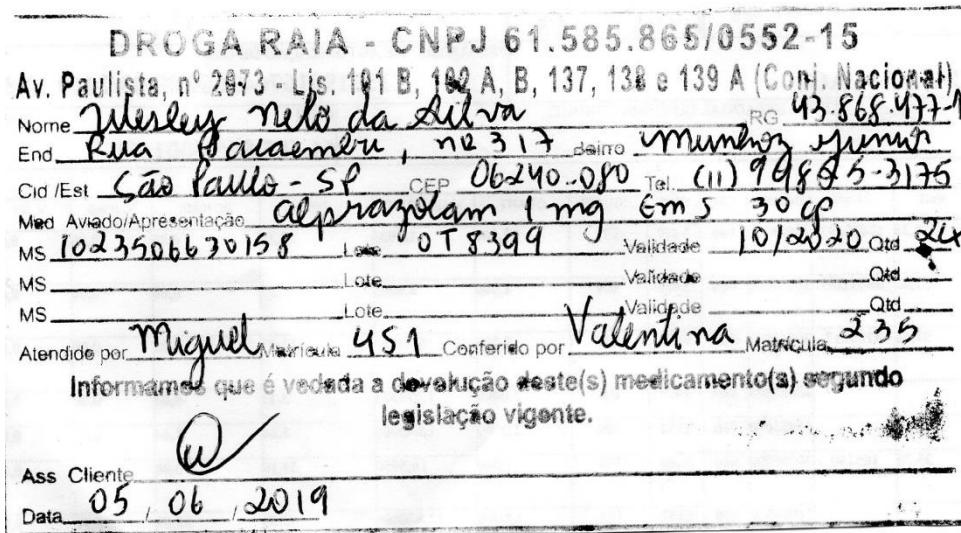 DROGA RAIA - CNPJ 61.585.865/0552-15
Av. Paulista, nº 2073 - Ljs. 101 B, 102 A, B, 137, 138 e 139 A (Conj. Nacional)
Nome Wesley Melo da Silva RG 43.868.477-1
End. Rua Pacaembu, nº 317 Bairro Munhoz Junior
Cid /Est São Paulo - SP CEP 06240-080 Tel. (11)
Med Aviado/Apresentação alprazolam 1 mg Ems 30 cp
MS 1023506630158 Lote 0T8399 Validade 10/2020 Qtd 2cx
MS Lote Validade Qtd
MS Lote Validade Qtd
Atendido por Miguel Matrícula 451 Conferido por Valentina Matrícula 235
Informamos que é vedada a devolução deste(s) medicamento(s) segundo
legislação vigente.
Ass Cliente
Data 05 / 06 / 2019